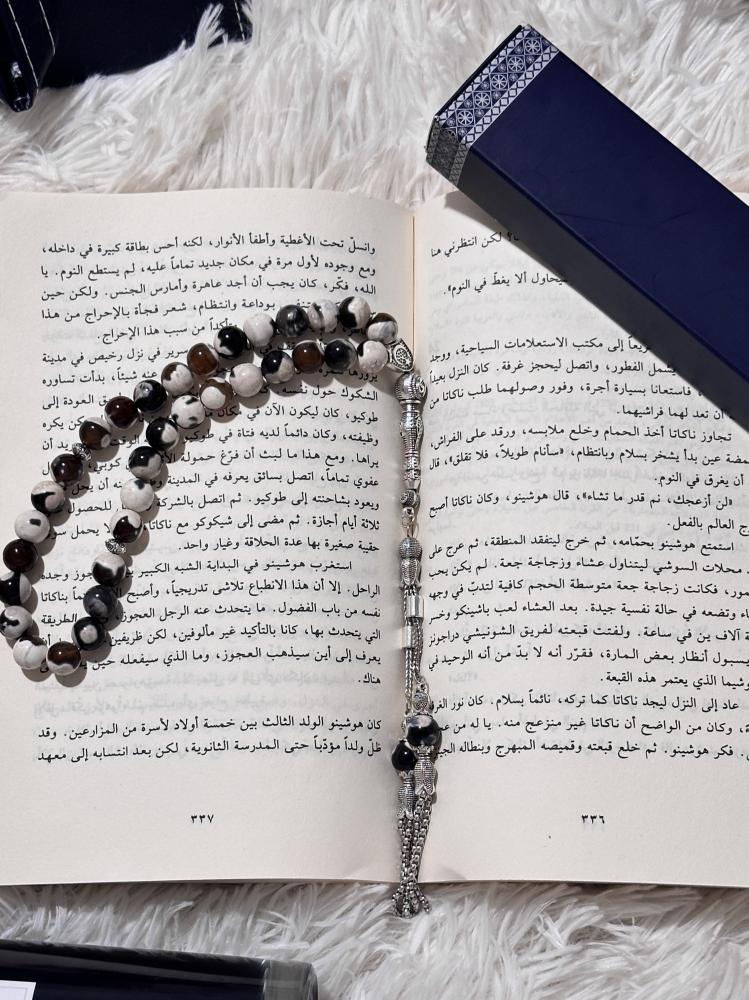 ؟ لكن انتظرني هنا
يحاول ألا يغطّ في النوم».
إلى مكتب الاستعلامات السياحية، ووجد
يشمل الفطور، واتصل ليحجز غرفة. كان النزل بعيداً
فاستعانا بسيارة أجرة، وفور وصولهما طلب ناكاتا من
أن تعد لهما فراشيهما.
تجاوز ناكاتا أخذ الحمام وخلع ملابسه، ورقد على الفراش،
مضة عين بدأ يشخر بسلام وبانتظام، «سأنام طويلاً، فلا تقلق»، قال
أن يغرق في النوم.
«لن أزعجك، نم قدر ما تشاء»، قال هوشينو، وكان ناكاتا أصبح
العالم بالفعل.
استمتع هوشينو بحمّامه، ثم خرج ليتفقد المنطقة، ثم عرج على
محلات السوشي ليتناول عشاء وزجاجة جعة. لم يكن يحب
فكانت زجاجة جعة متوسطة الحجم كافية لتدبّ في وجهه
وتضعه في حالة نفسية جيدة. بعد العشاء لعب باشينكو وخسر
آلاف ين في ساعة. ولفتت قبعته لفريق الشونيشي دراجونز
أنظار بعض المارة، فقرّر أنه لا بدّ من أنه الوحيد في
الذي يعتمر هذه القبعة.
عاد إلى النزل ليجد ناكاتا كما تركه، نائماً بسلام. كان نور
وكان من الواضح أن ناكاتا غير منزعج منه. يا له من
فكر هوشينو. ثم خلع قبعته وقميصه المبهرج وبنطاله
٣٣٦
وانسلّ تحت الأغطية وأطفأ الأنوار، لكنه أحس بطاقة كبيرة في داخله،
ومع وجوده لأول مرة في مكان جديد تماماً عليه، لم يستطع النوم. يا
الله، فكّر، كان يجب أن أجد عاهرة وأمارس الجنس. ولكن حين
بوداعة وانتظام، شعر فجأة بالإحراج من هذا
من سبب هذا الإحراج.
سرير في نزل رخيص في مدينة
يزورها عنه شيئاً، بدأت تساوره
الشكوك حول العودة إلى
طوكيو، كان ليكون الآن في يكره
وظيفته، وكان دائماً لديه فتاة في طوكيو أن
يراها. ومع هذا ما لبث أن فرّغ حمولة كوبي،
عفوي تماماً، اتصل بسائق يعرفه في المدينة أنه أن
ويعود بشاحنته إلى طوكيو. ثم اتصل بالشركة للحصول
ثلاثة أيام أجازة. ثم مضى إلى شيكوكو مع لا يحمل
حقيبة صغيرة بها عدة الحلاقة وغيار واحد.
استغرب هوشينو في البداية الشبه الكبير وجده
الراحل. إلا أن هذا الانطباع تلاشى تدريجياً، وأصبح بناكاتا
نفسه من باب الفضول. ما يتحدث عنه الرجل العجوز،
التي يتحدث بها، كانا بالتأكيد غير مألوفين، لكن ظريفين
يعرف إلى أين سيذهب العجوز، وما الذي سيفعله حين
هناك.
كان هوشينو الولد الثالث بين خمسة أولاد لأسرة من المزارعين. وقد
ظلّ ولداً مؤدّباً حتى المدرسة الثانوية، لكن بعد انتسابه إلى معهد
٣٣٧